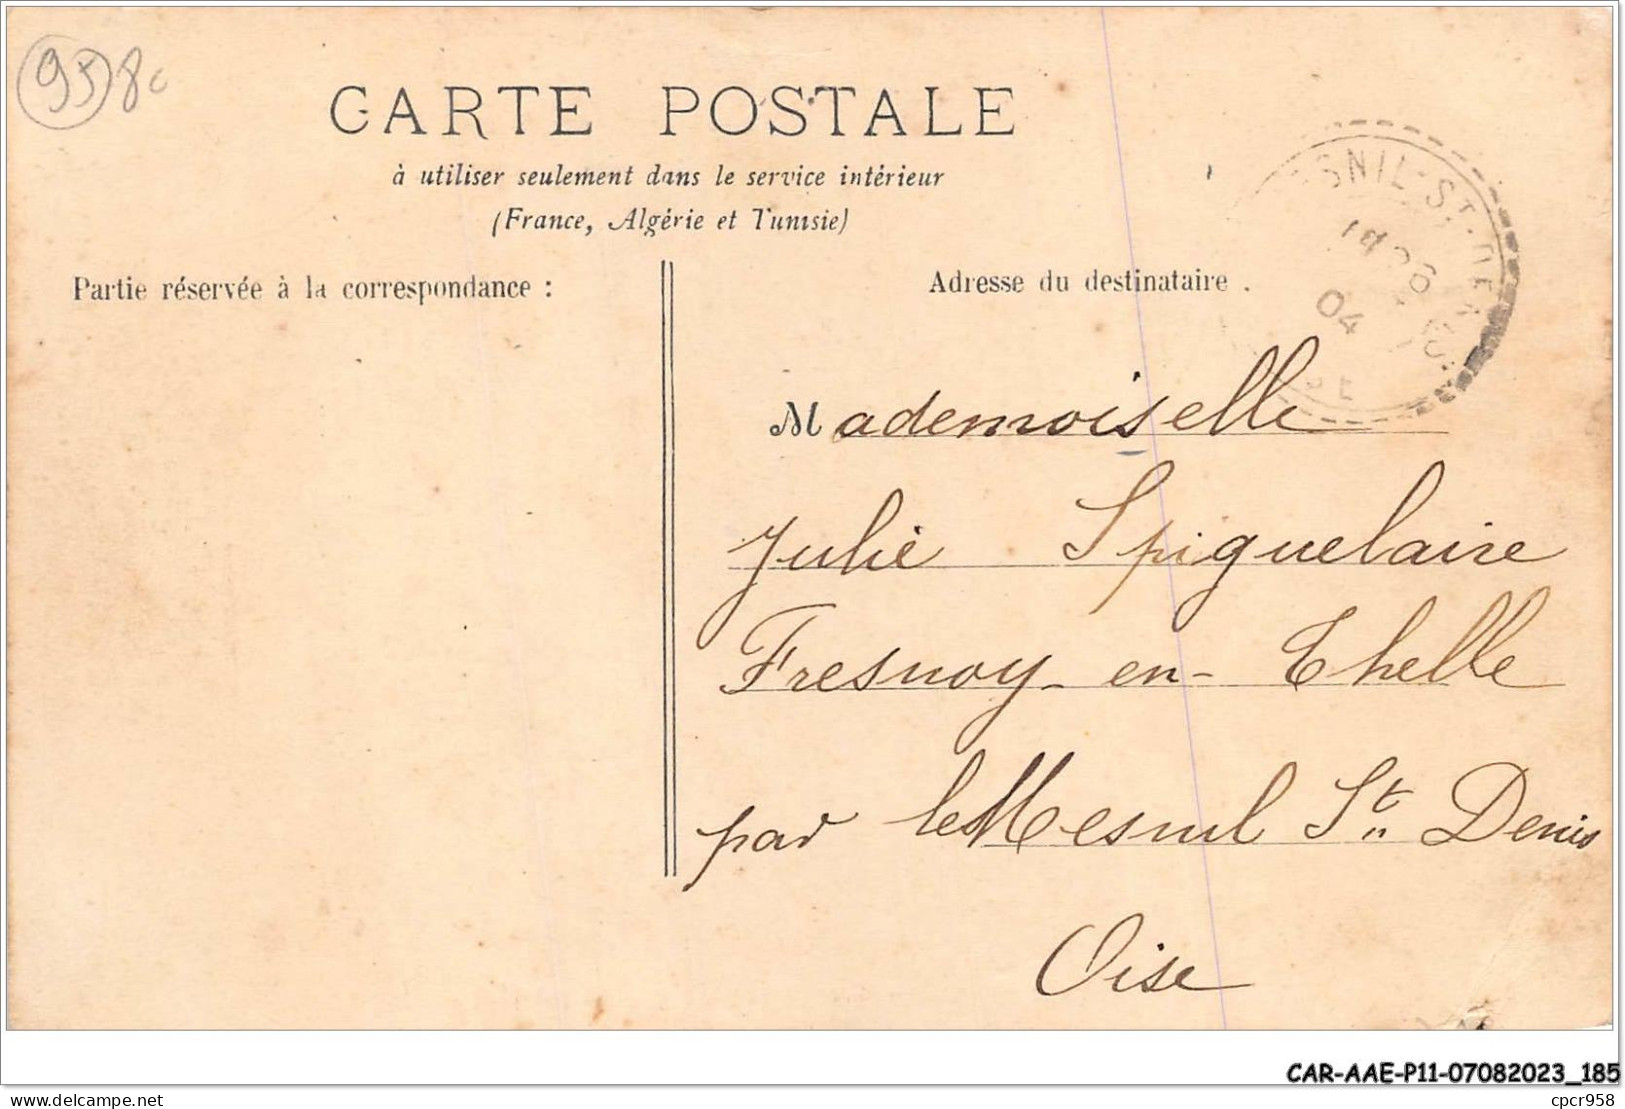 958c
CARTE POSTALE
à utiliser seulement dans le service intérieur
(France, Algérie et Tunisie)
Partie réservée à la correspondance :
Adresse du destinataire .
SNIL-ST-DE
04
Mademoiselle
Julie Spiquelaire
Fresnoy-en-Thelle
par le Mesnil St Denis
Oise
CAR-AAE-P11-07082023_185
delcampe.net
cpcr958